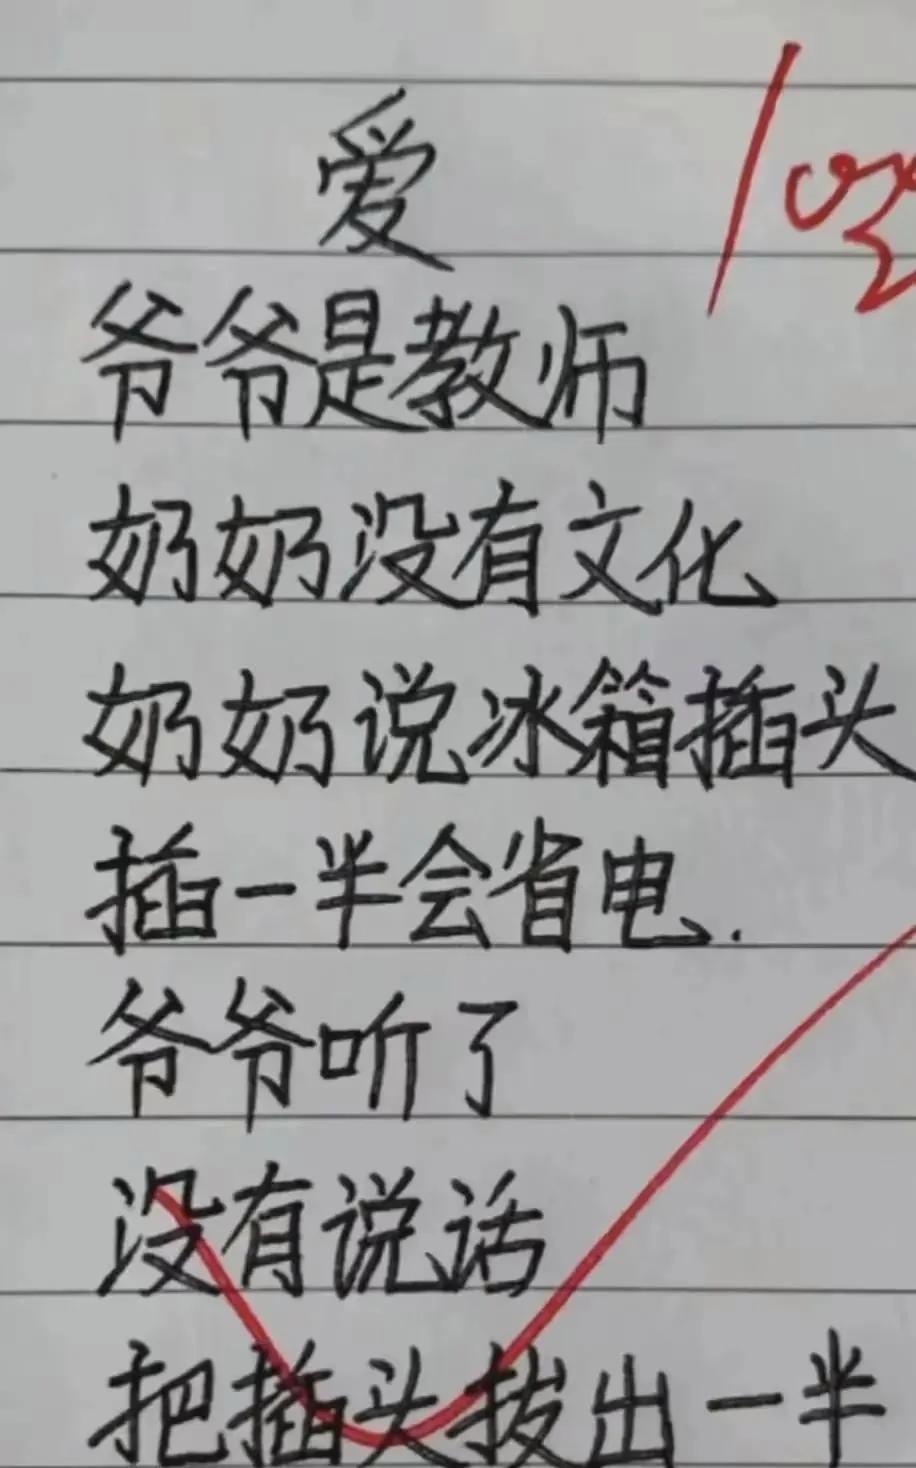 爱
爷爷是教师
奶奶没有文化
奶奶说冰箱插头
插一半会省电.
爷爷听了
没有说话
把插头拔出一半